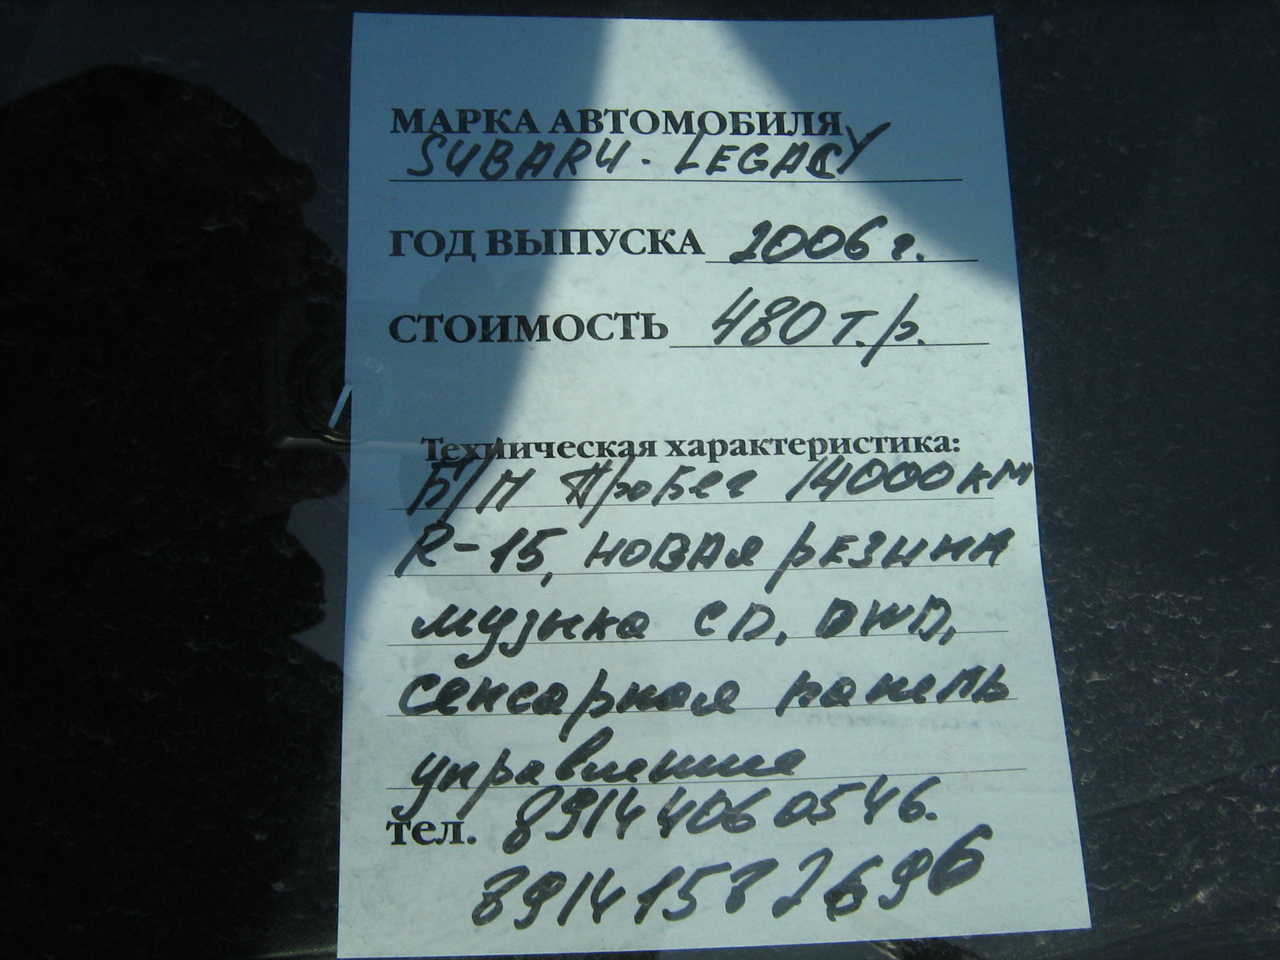 МАРКА АВТОМОБИЛЯ
SUBARU - LEGACY
ГОД ВЫПУСКА 2006 г.
СТОИМОСТЬ 480 т.р.
Техническая характеристика:
Б/П Пробег 14000 км
R-15, новая резина
музыка CD, DWD,
сенсорная панель
управления
тел. 89144060546.
89141582696